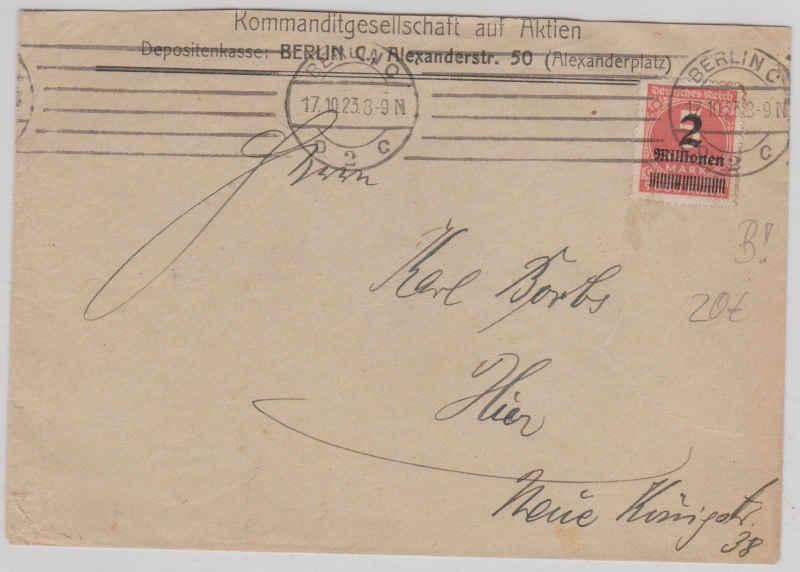 Kommanditgesellschaft auf Aktien
Depositenkasse: BERLIN C., Alexanderstr. 50 (Alexanderplatz)
BERLIN C
17.10.23. 8-9 N
2 C
BERLIN C
17.10.23. 8-9 N
2 C
Deutsches Reich
2
Millionen
MARK
Herrn
Karl
Hier
Neue Königstr.
38
B!
20€